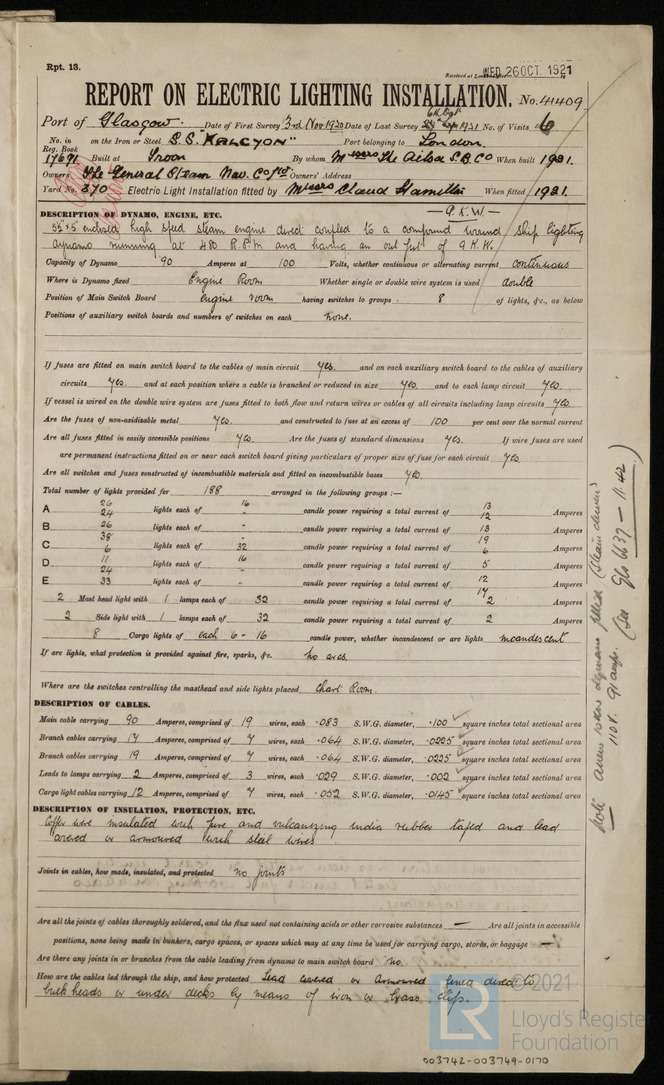 Rpt. 13.
Received at London Office WED. 26 OCT. 1921
REPORT ON ELECTRIC LIGHTING INSTALLATION. No. 41409
Port of Glasgow. Date of First Survey 3rd Nov 1920 Date of Last Survey 1921 No. of Visits 6
No. in Reg. Book 17691 on the Iron or Steel S.S. "HALCYON" Port belonging to London.
Built at Troon By whom Messrs The Ailsa S.B. Co When built 1921.
Owners The General Steam Nav. Co Ltd Owners' Address
Yard No. 370 Electric Light Installation fitted by Messrs Claud Hamilton When fitted 1921.
DESCRIPTION OF DYNAMO, ENGINE, ETC. — 9 K.W —
enclosed high speed steam engine direct coupled to a compound wound ship lighting
dynamo running at 480 R.P.M and having an out put of 9 K.W.
Capacity of Dynamo 90 Amperes at 100 Volts, whether continuous or alternating current continuous
Where is Dynamo fixed Engine Room Whether single or double wire system is used double
Position of Main Switch Board engine room having switches to groups 8 of lights, &c., as below
Positions of auxiliary switch boards and numbers of switches on each None.
If fuses are fitted on main switch board to the cables of main circuit yes. and on each auxiliary switch board to the cables of auxiliary
circuits yes. and at each position where a cable is branched or reduced in size yes. and to each lamp circuit yes.
If vessel is wired on the double wire system are fuses fitted to both flow and return wires or cables of all circuits including lamp circuits yes.
Are the fuses of non-oxidizable metal yes. and constructed to fuse at an excess of 100 per cent over the normal current
Are all fuses fitted in easily accessible positions yes. Are the fuses of standard dimensions yes. If wire fuses are used
are permanent instructions fitted on or near each switch board giving particulars of proper size of fuse for each circuit yes
Are all switches and fuses constructed of incombustible materials and fitted on incombustible bases yes.
Total number of lights provided for 188 arranged in the following groups :—
A 26 lights each of 16 candle power requiring a total current of 13 Amperes
24 " 12
B 26 lights each of " candle power requiring a total current of 13 Amperes
38 " 19
C 6 lights each of 32 candle power requiring a total current of 6 Amperes
D 11 lights each of 16 candle power requiring a total current of 5 Amperes
24 " 12
E 33 lights each of " candle power requiring a total current of 17 Amperes
2 Mast head light with 1 lamps each of 32 candle power requiring a total current of 2 Amperes
2 Side light with 1 lamps each of 32 candle power requiring a total current of 2 Amperes
8 Cargo lights of each 6 - 16 candle power, whether incandescent or arc lights incandescent
If arc lights, what protection is provided against fire, sparks, &c. no arcs
Where are the switches controlling the masthead and side lights placed Chart Room.
DESCRIPTION OF CABLES.
Main cable carrying 90 Amperes, comprised of 19 wires, each .083 S.W.G. diameter, .100 square inches total sectional area
Branch cables carrying 17 Amperes, comprised of 7 wires, each .064 S.W.G. diameter, .0225 square inches total sectional area
Branch cables carrying 19 Amperes, comprised of 7 wires, each .064 S.W.G. diameter, .0225 square inches total sectional area
Leads to lamps carrying 2 Amperes, comprised of 3 wires, each .029 S.W.G. diameter, .002 square inches total sectional area
Cargo light cables carrying 12 Amperes, comprised of 7 wires, each .052 S.W.G. diameter, .0145 square inches total sectional area
DESCRIPTION OF INSULATION, PROTECTION, ETC.
Copper wire insulated with pure and vulcanizing india rubber taped and lead
covered or armoured with steel wires
Joints in cables, how made, insulated, and protected no joints
Are all the joints of cables thoroughly soldered, and the flux used not containing acids or other corrosive substances — Are all joints in accessible
positions, none being made in bunkers, cargo spaces, or spaces which may at any time be used for carrying cargo, stores, or baggage —
Are there any joints in or branches from the cable leading from dynamo to main switch board no.
How are the cables led through the ship, and how protected Lead covered or Armoured fixed direct to
bulkheads or under decks by means of iron or brass clips.
Note dynamo fitted (Steam driven)
110 v. 91 amp. (See Gls 6637 - 11.42)
© 2021
LR
Lloyd's Register
Foundation
003742-003749-0170